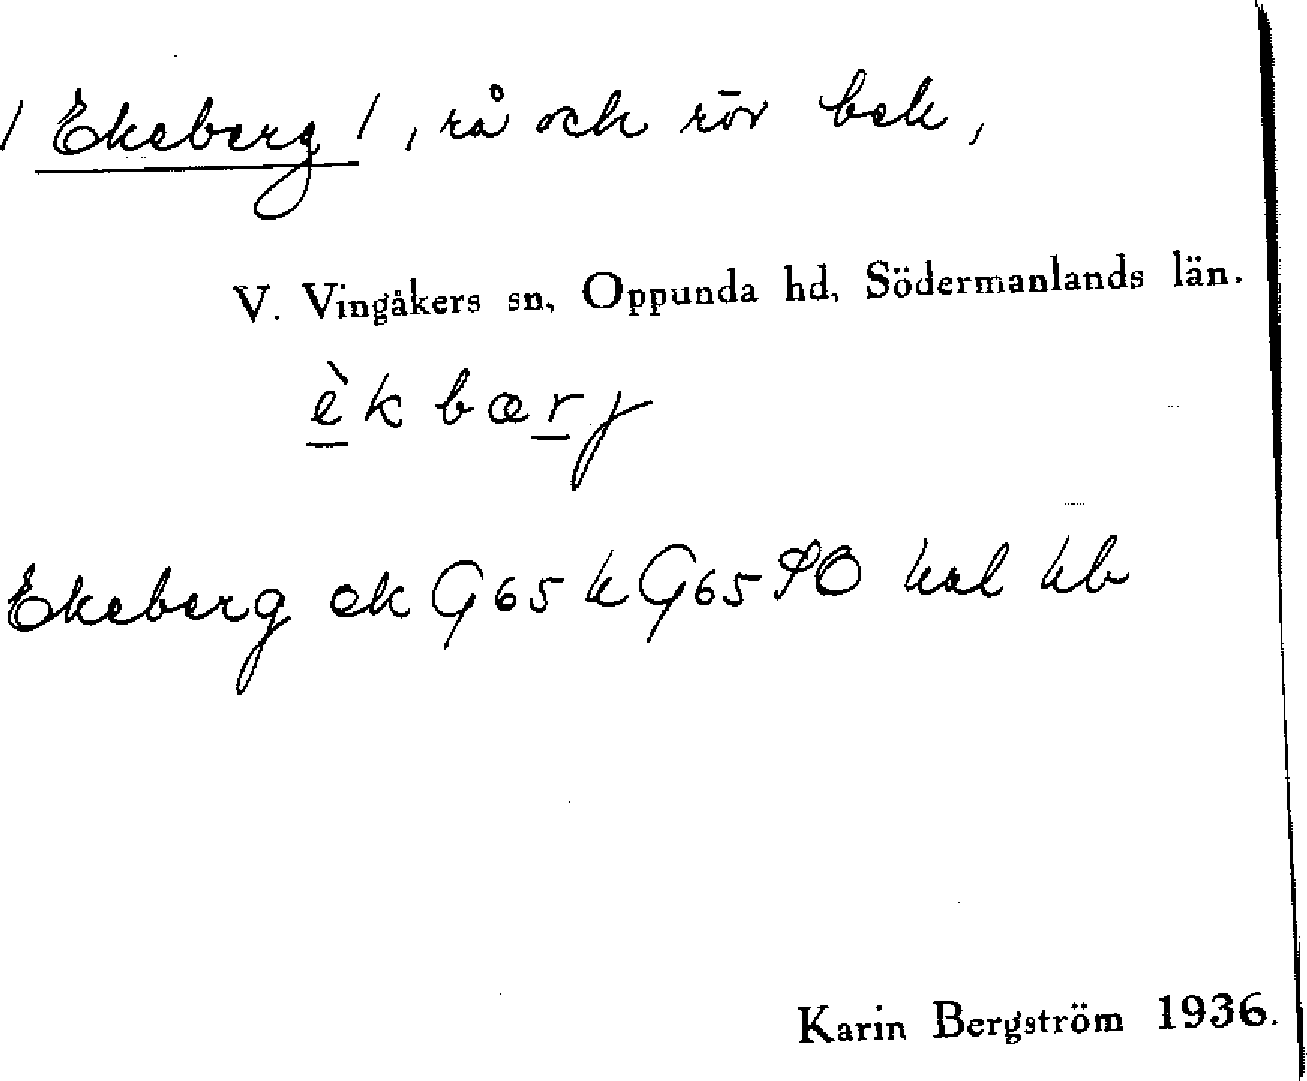 / Ekeberg /, rå och rör bek,
V. Vingåkers sn, Oppunda hd, Södermanlands län.
èk bærj
Ekeberg ek G65 k G65 SO hsl hb
Karin Bergström 1936.